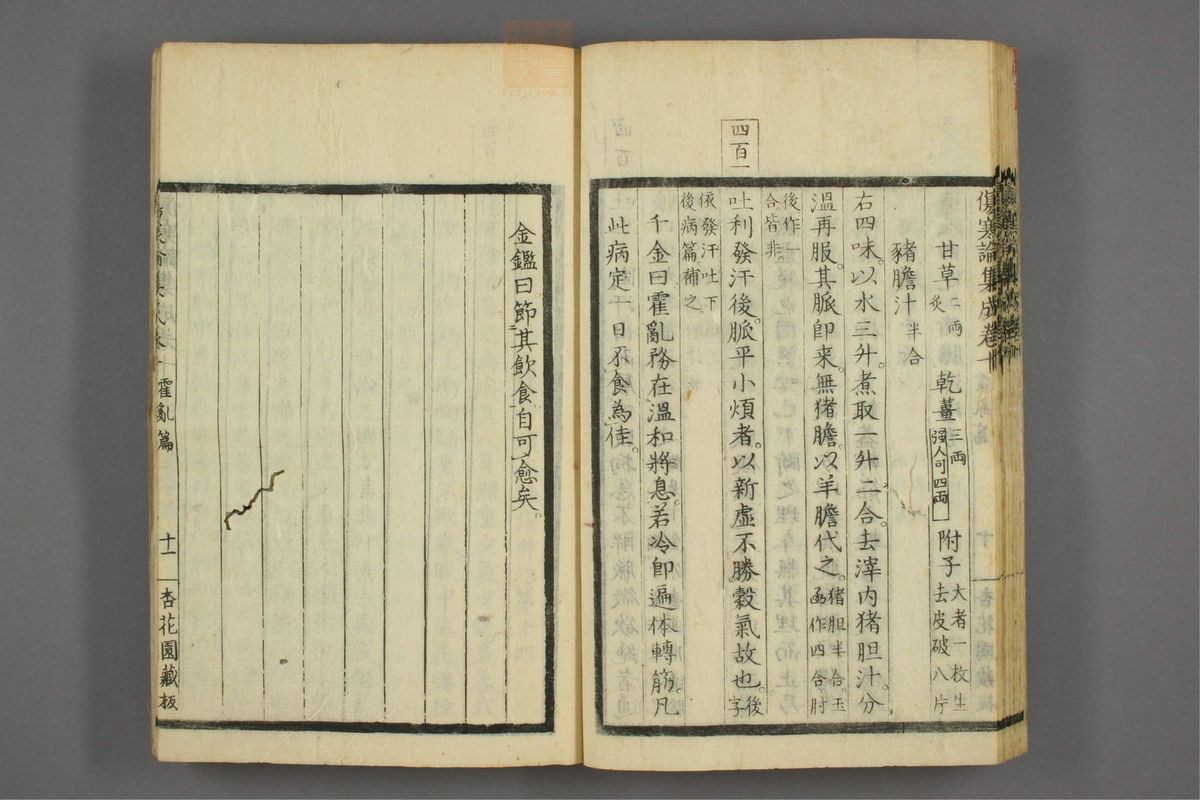 傷寒論集成卷十
甘草二兩炙 乾薑三兩強人可四兩 附子大者一枚生去皮破八片
豬膽汁半合
右四味。以水三升。煮取一升二合。去滓内猪胆汁。分
溫再服。其脈卽来。無猪膽。以羊膽代之。猪胆半合。玉函作四合。肘
後作一合皆非
四百一
吐利發汗後。脈平小煩者。以新虛不勝穀氣故也。後字
依發汗吐下後病篇補之
千金曰霍亂務在溫和將息。若冷卽遍体轉筋。凡
此病定一日不食為佳。
金鑑曰。節其飲食自可愈矣。
霍亂篇
十一
杏花園藏板
zysj.com.cn